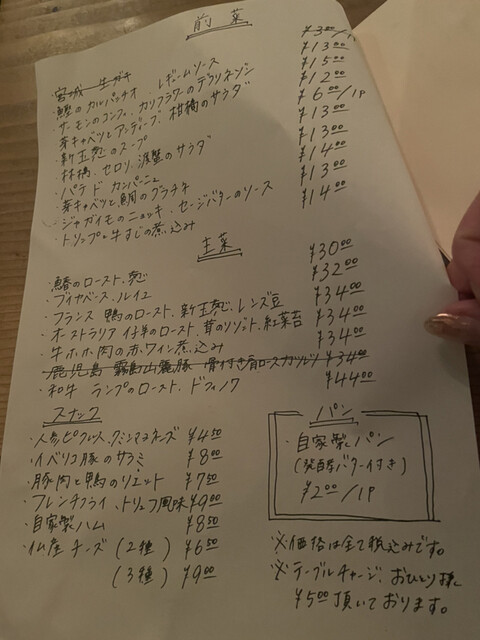 前菜
・宮城 生ガキ ¥300/1P
・鰹のカルパッチオ、レギュームソース ¥1300
・サーモンのコンフィ、カリフラワーのデクリネゾン ¥1500
・芽キャベツとアンディーブ、柑橘のサラダ ¥1200
・新玉葱のスープ ¥600/1P
・林檎、セロリ、渡蟹のサラダ ¥1300
・パテ ド カンパーニュ ¥1300
・芽キャベツと鯛のグラチネ ¥1400
・ジャガイモのニョッキ、セージバターのソース ¥1300
・トリップと牛すじの煮込み ¥1400
主菜
・鰆のロースト、葱 ¥3000
・ブイヤベース、ルイユ ¥3200
・フランス 鴨のロースト、新玉葱、レンズ豆 ¥3400
・オーストラリア 仔羊のロースト、茸のリゾット、紅菜苔 ¥3400
・牛ホホ肉の赤ワイン煮込み ¥3400
・鹿児島 霧島山麓豚 骨付き肩ロースカツレツ ¥3400
・和牛 ランプのロースト、ドフィノワ ¥4400
スナック
・人参ピクルス、クミンマヨネーズ ¥450
・イベリコ豚のサラミ ¥800
・豚肉と鴨のリエット ¥750
・フレンチフライ、トリュフ風味 ¥900
・自家製ハム ¥850
・仏産チーズ (2種) ¥650
(3種) ¥900
パン
・自家製パン
(発酵バター付き)
¥200/1P
※価格は全て税込みです。
※テーブルチャージ、おひとり様
¥500頂いております。